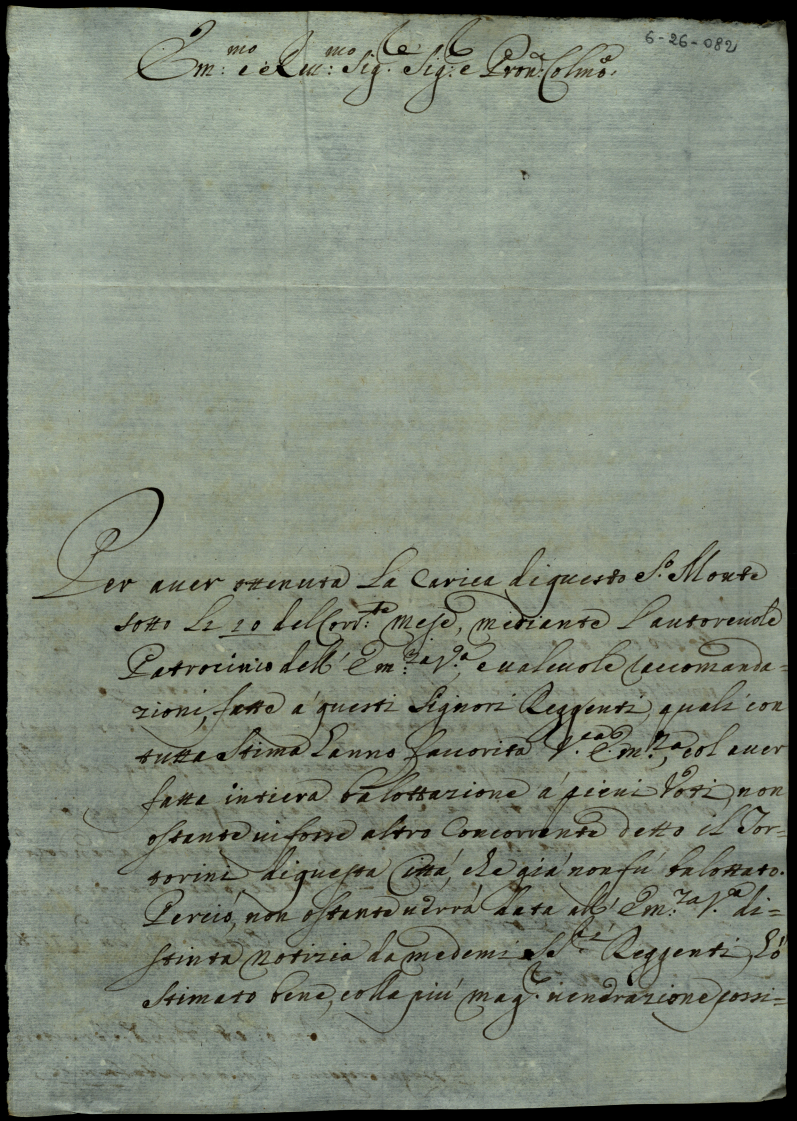 6-26-082
Em:mo e Rev:mo Sig.re Sig:re e Pron: Colmo:
Per aver ottenuta La Carica di questo S.o Monte
sotto Li 20 del Corr:te Mese, mediante l'autorevole
Patrocinio dell' Em:za V.a, e valevole raccomanda=
zioni, fatte á questi Signori Reggenti, quali con
tutta Stima hanno favorita V.a Em:za, col aver
fatta intiera balottazione á pieni Voti, non
ostante vi fosse altro Concorrente detto il Tor=
torini di questa Cittá, che giá non fú balottato.
Perció, non ostante verrá data all' Em:za V.a di=
stinta notizia da medemi SS.ri Reggenti, hó
Stimato bene, colla piú mag.e venerazione possi=